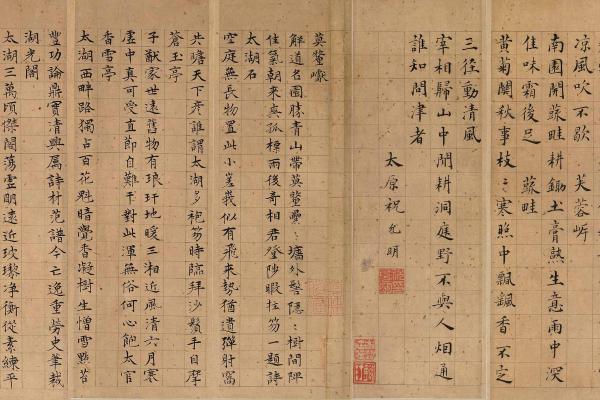 涼風吹不歇 芙蓉㟁
南園開蔬畦耕鋤土膏熱生意雨中深
佳味霜後足 蔬畦
黃菊闌秋事枝〻寒照中飄飄香不定
三徑動清風
宰相歸山中閒耕洞庭野不與人烟通
誰知問津者
太原祝允明
莫釐巘
解道名園勝青山帶莫釐〻墻外聳隱〻樹間陴
佳氣朝來爽孤標雨後奇相君登陟暇拄笏一題詩
太湖石
空庭無長物置此小嵳峩似有飛來勢猶遺彈射窩
共瞻天下彥誰謂太湖多袍笏時臨拜沙鬚手自摩
蒼玉亭
子猷家世遠舊物有琅玕地暖三湘近風清六月寒
虛中真可受直節自難干對此渾無俗何心飽太官
香雪亭
太湖西畔路獨占百花魁晴覺香凝樹生憎雪點苔
豐功論鼎實清興屬詩材范譜今亡逸重勞史筆裁
湖光閣
太湖三萬頃傑閣蕩明遠近玻瓈凈衡從素練平